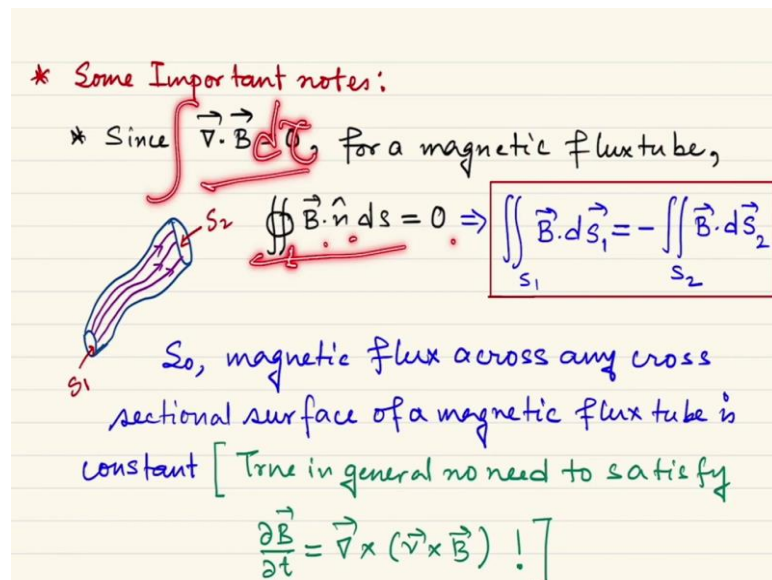 * Some Important notes:
* Since ∫ ∇⃗·B⃗ dτ, for a magnetic flux tube,
∯ B⃗·n̂ ds = 0 ⇒ ∬_{S1} B⃗·dS⃗₁ = - ∬_{S2} B⃗·dS⃗₂
S2
S1
So, magnetic flux across any cross
sectional surface of a magnetic flux tube is
constant [True in general no need to satisfy
∂B⃗/∂t = ∇⃗ × (v⃗ × B⃗) !]